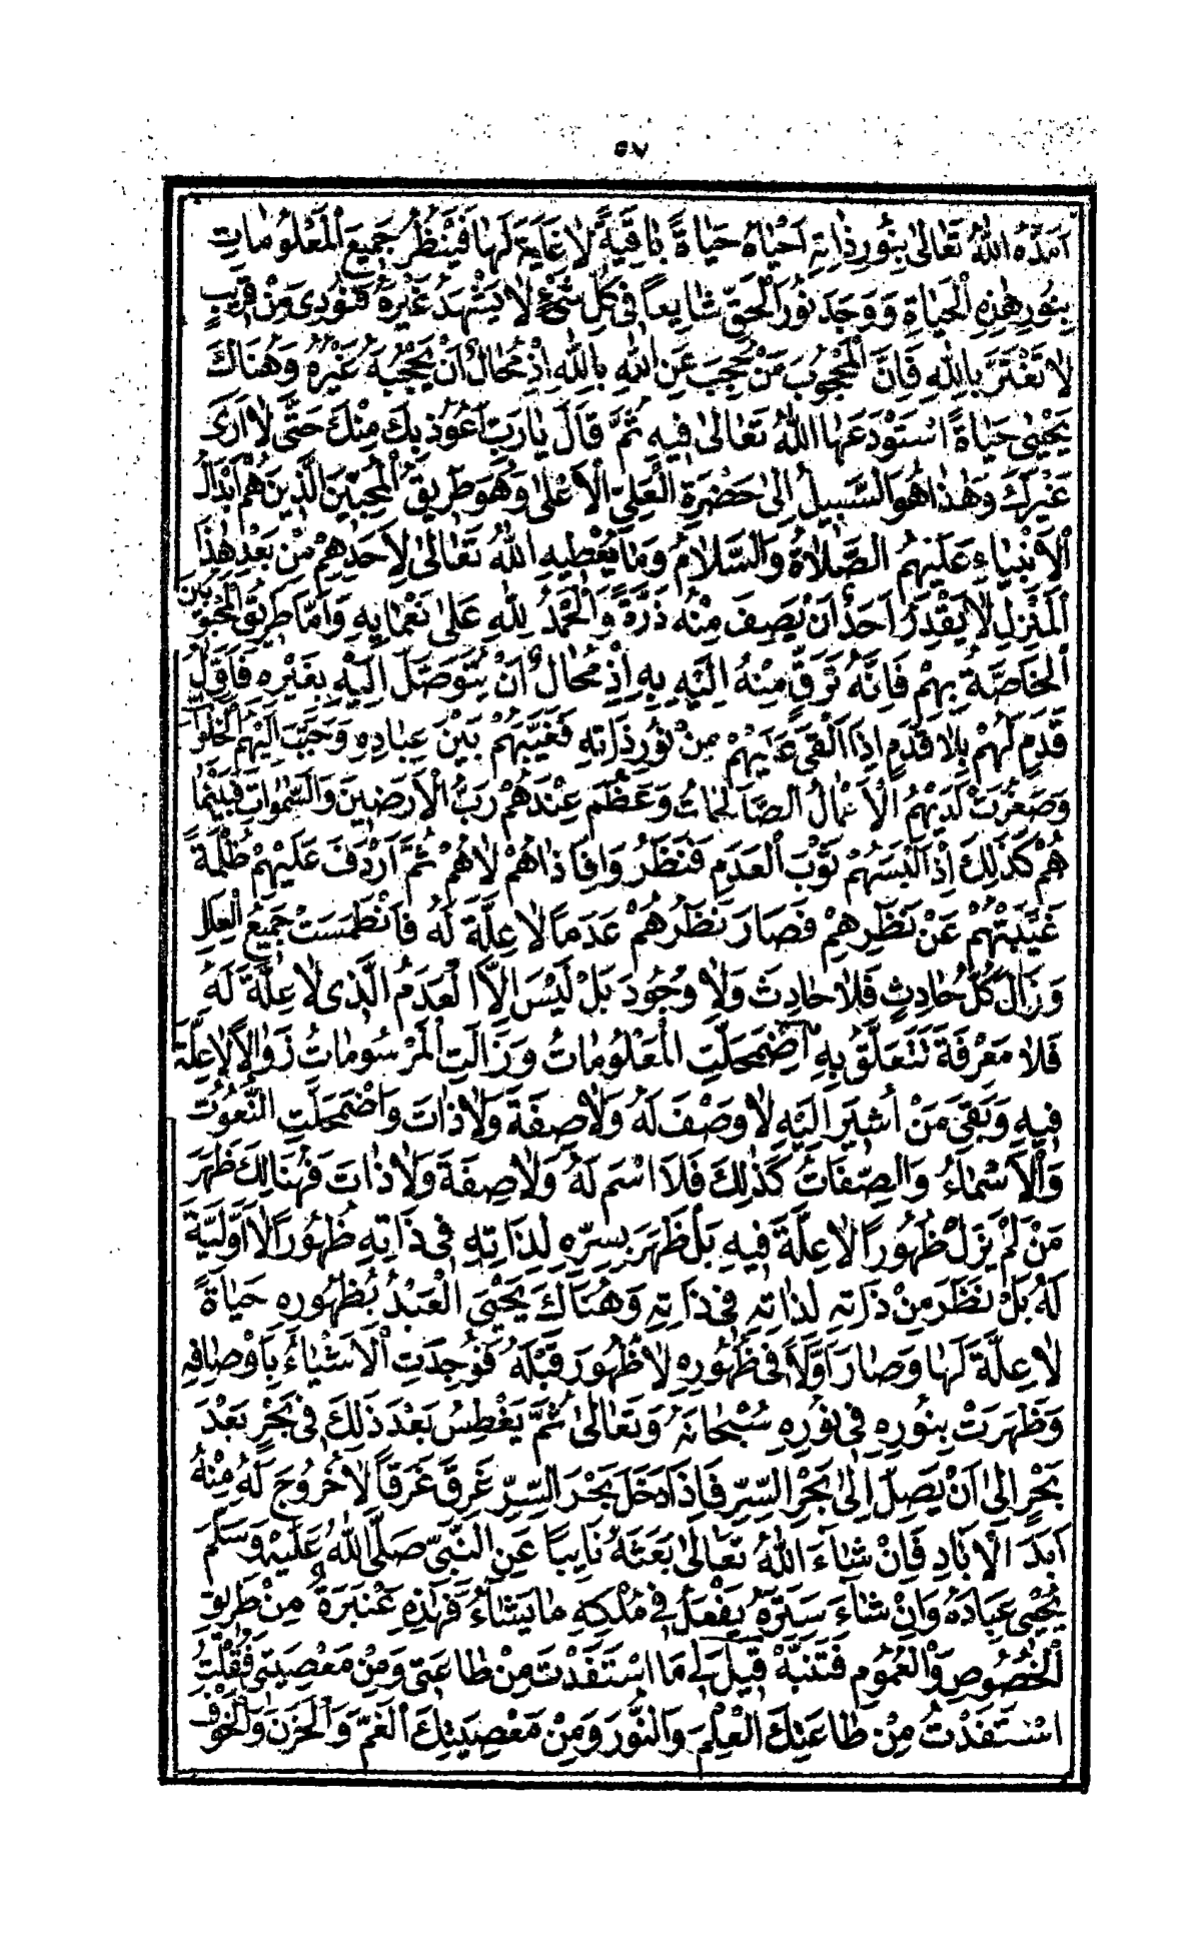 ٥٧
اَمَدَّهُ اللّٰهُ تَعَالٰى بِنُورِ ذَاتِهِ اَحْيَاهُ حَيَاةً بَاقِيَةً لَا غَايَةَ لَهَا فَيَنْظُرُ جَمِيعَ الْمَعْلُومَاتِ
بِنُورِ هٰذِهِ الْحَيَاةِ وَوَجَدَ نُورَ الْحَقِّ شَايِعًا فِى كُلِّ شَىْءٍ لَا يَشْهَدُ غَيْرَهُ فَنُودِىَ مِنْ قَرِيبٍ
لَا تَغْتَرَّ بِاللّٰهِ فَاِنَّ الْمَحْجُوبَ مَنْ حُجِبَ عَنِ اللّٰهِ بِاللّٰهِ اِذْ مُحَالٌ اَنْ يَحْجُبَهُ غَيْرُهُ وَهُنَاكَ
يَحْيٰى حَيَاةً اسْتَوْدَعَهَا اللّٰهُ تَعَالٰى فِيهِ ثُمَّ قَالَ يَارَبِّ اَعُوذُ بِكَ مِنْكَ حَتَّى لَا اَرٰى
غَيْرَكَ وَهٰذَا هُوَ السَّبِيلُ اِلٰى حَضْرَةِ الْعَلِىِّ الْاَعْلٰى وَهُوَ طَرِيقُ الْمُحِبِّينَ الَّذِينَ هُمْ اَبْدَالُ
الْاَنْبِيَاءِ عَلَيْهِمُ الصَّلَاةُ وَالسَّلَامُ وَمَا يُعْطِيهِ اللّٰهُ تَعَالٰى لِاَحَدِهِمْ مِنْ بَعْدِ هٰذَا
الْمَنْزِلِ لَا يَقْدِرُ اَحَدٌ اَنْ يَصِفَ مِنْهُ ذَرَّةً وَالْحَمْدُ لِلّٰهِ عَلٰى نَعْمَايِهِ وَاَمَّا طَرِيقُ الْمَحْبُوبِينَ
الْخَاصَّةُ بِهِمْ فَاِنَّهُ تَرَقٍّ مِنْهُ اِلَيْهِ بِهِ اِذْ مُحَالٌ اَنْ يُتَوَصَّلَ اِلَيْهِ بِغَيْرِهِ فَاَوَّلُ
قَدَمٍ لَهُمْ بِلَا قَدَمٍ اِذَا اَلْقَى عَلَيْهِمْ مِنْ نُورِ ذَاتِهِ فَغَيَّبَهُمْ بَيْنَ عِبَادِهِ وَحَبَّبَ اِلَيْهِمُ الْخَلَوَاتِ
وَصَغُرَتْ لَدَيْهِمُ الْاَعْمَالُ الصَّالِحَاتُ وَعَظُمَ عِنْدَهُمْ رَبُّ الْاَرَضِينَ وَالسَّمٰوَاتِ فَبَيْنَمَا
هُمْ كَذَلِكَ اِذْ اَلْبَسَهُمْ ثَوْبَ الْعَدَمِ فَنَظَرُوا فَاِذَاهُمْ لَاهُمْ ثُمَّ اَرْدَفَ عَلَيْهِمْ ظُلْمَةً
غَيَّبَتْهُمْ عَنْ نَظَرِهِمْ فَصَارَ نَظَرُهُمْ عَدَمًا لَا عِلَّةَ لَهُ فَانْطَمَسَتْ جَمِيعُ الْعِلَلِ
وَزَالَ كُلُّ حَادِثٍ فَلَا حَادِثَ وَلَا وُجُودَ بَلْ لَيْسَ اِلَّا الْعَدَمُ الَّذِى لَا عِلَّةَ لَهُ
فَلَا مَعْرِفَةَ تَتَعَلَّقُ بِهِ اضْمَحَلَّتِ الْمَعْلُومَاتُ وَزَالَتِ الْمَرْسُومَاتُ زَوَالًا لَا عِلَّةَ
فِيهِ وَبَقِىَ مَنْ اُشِيرَ اِلَيْهِ لَا وَصْفَ لَهُ وَلَا صِفَةَ وَلَا ذَاتَ وَاضْمَحَلَّتِ النُّعُوتُ
وَالْاَسْمَاءُ وَالصِّفَاتُ كَذٰلِكَ فَلَا اسْمَ لَهُ وَلَا صِفَةَ وَلَا ذَاتَ فَهُنَالِكَ ظَهَرَ
مَنْ لَمْ يَزَلْ ظُهُورًا لَا عِلَّةَ فِيهِ بَلْ ظَهَرَ بِسِرِّهِ لِذَاتِهِ فِى ذَاتِهِ ظُهُورًا لَا اَوَّلِيَّةَ
لَهُ بَلْ نَظَرَ مِنْ ذَاتِهِ لِذَاتِهِ فِى ذَاتِهِ وَهُنَاكَ يَحْيَى الْعَبْدُ بِظُهُورِهِ حَيَاةً
لَا عِلَّةَ لَهَا وَصَارَ اَوَّلًا فِى ظُهُورِهِ لَا ظُهُورَ قَبْلَهُ فَوُجِدَتِ الْاَشْيَاءُ بِاَوْصَافِهِ
وَظَهَرَتْ بِنُورِهِ فِى نُورِهِ سُبْحَانَهُ وَتَعَالٰى ثُمَّ يَغْطِسُ بَعْدَ ذَلِكَ فِى بَحْرٍ بَعْدَ
بَحْرٍ اِلٰى اَنْ يَصِلَ اِلٰى بَحْرِ السِّرِّ فَاِذَا دَخَلَ بَحْرَ السِّرِّ غَرِقَ غَرَقًا لَا خُرُوجَ لَهُ مِنْهُ
اَبَدَ الْاٰبَادِ فَاِنْ شَاءَ اللّٰهُ تَعَالٰى بَعَثَهُ نَايِبًا عَنِ النَّبِىِّ صَلَّى اللّٰهُ عَلَيْهِ وَسَلَّمَ
يُحْيِى عِبَادَهُ وَاِنْ شَاءَ سَتَرَهُ يَفْعَلُ فِى مُلْكِهِ مَا يَشَاءُ فَهٰذِهِ عَنْبَرَةٌ مِنْ طَرِيقِ
الْخُصُوصِ وَالْعُمُومِ فَتَنَبَّهْ قِيلَ لِى مَا اسْتَفَدْتَ مِنْ طَاعَتِى وَمِنْ مَعْصِيَتِى فَقُلْتُ
اسْتَفَدْتُ مِنْ طَاعَتِكَ الْعِلْمَ وَالنُّورَ وَمِنْ مَعْصِيَتِكَ الْغَمَّ وَالْحَزَنَ وَالْخَوْفَ